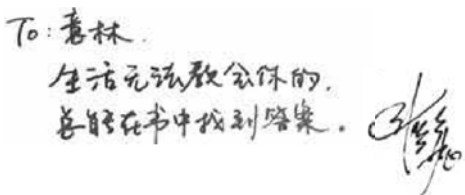 To: 意林.
生活无法教会你的,
总能在书中找到答案。